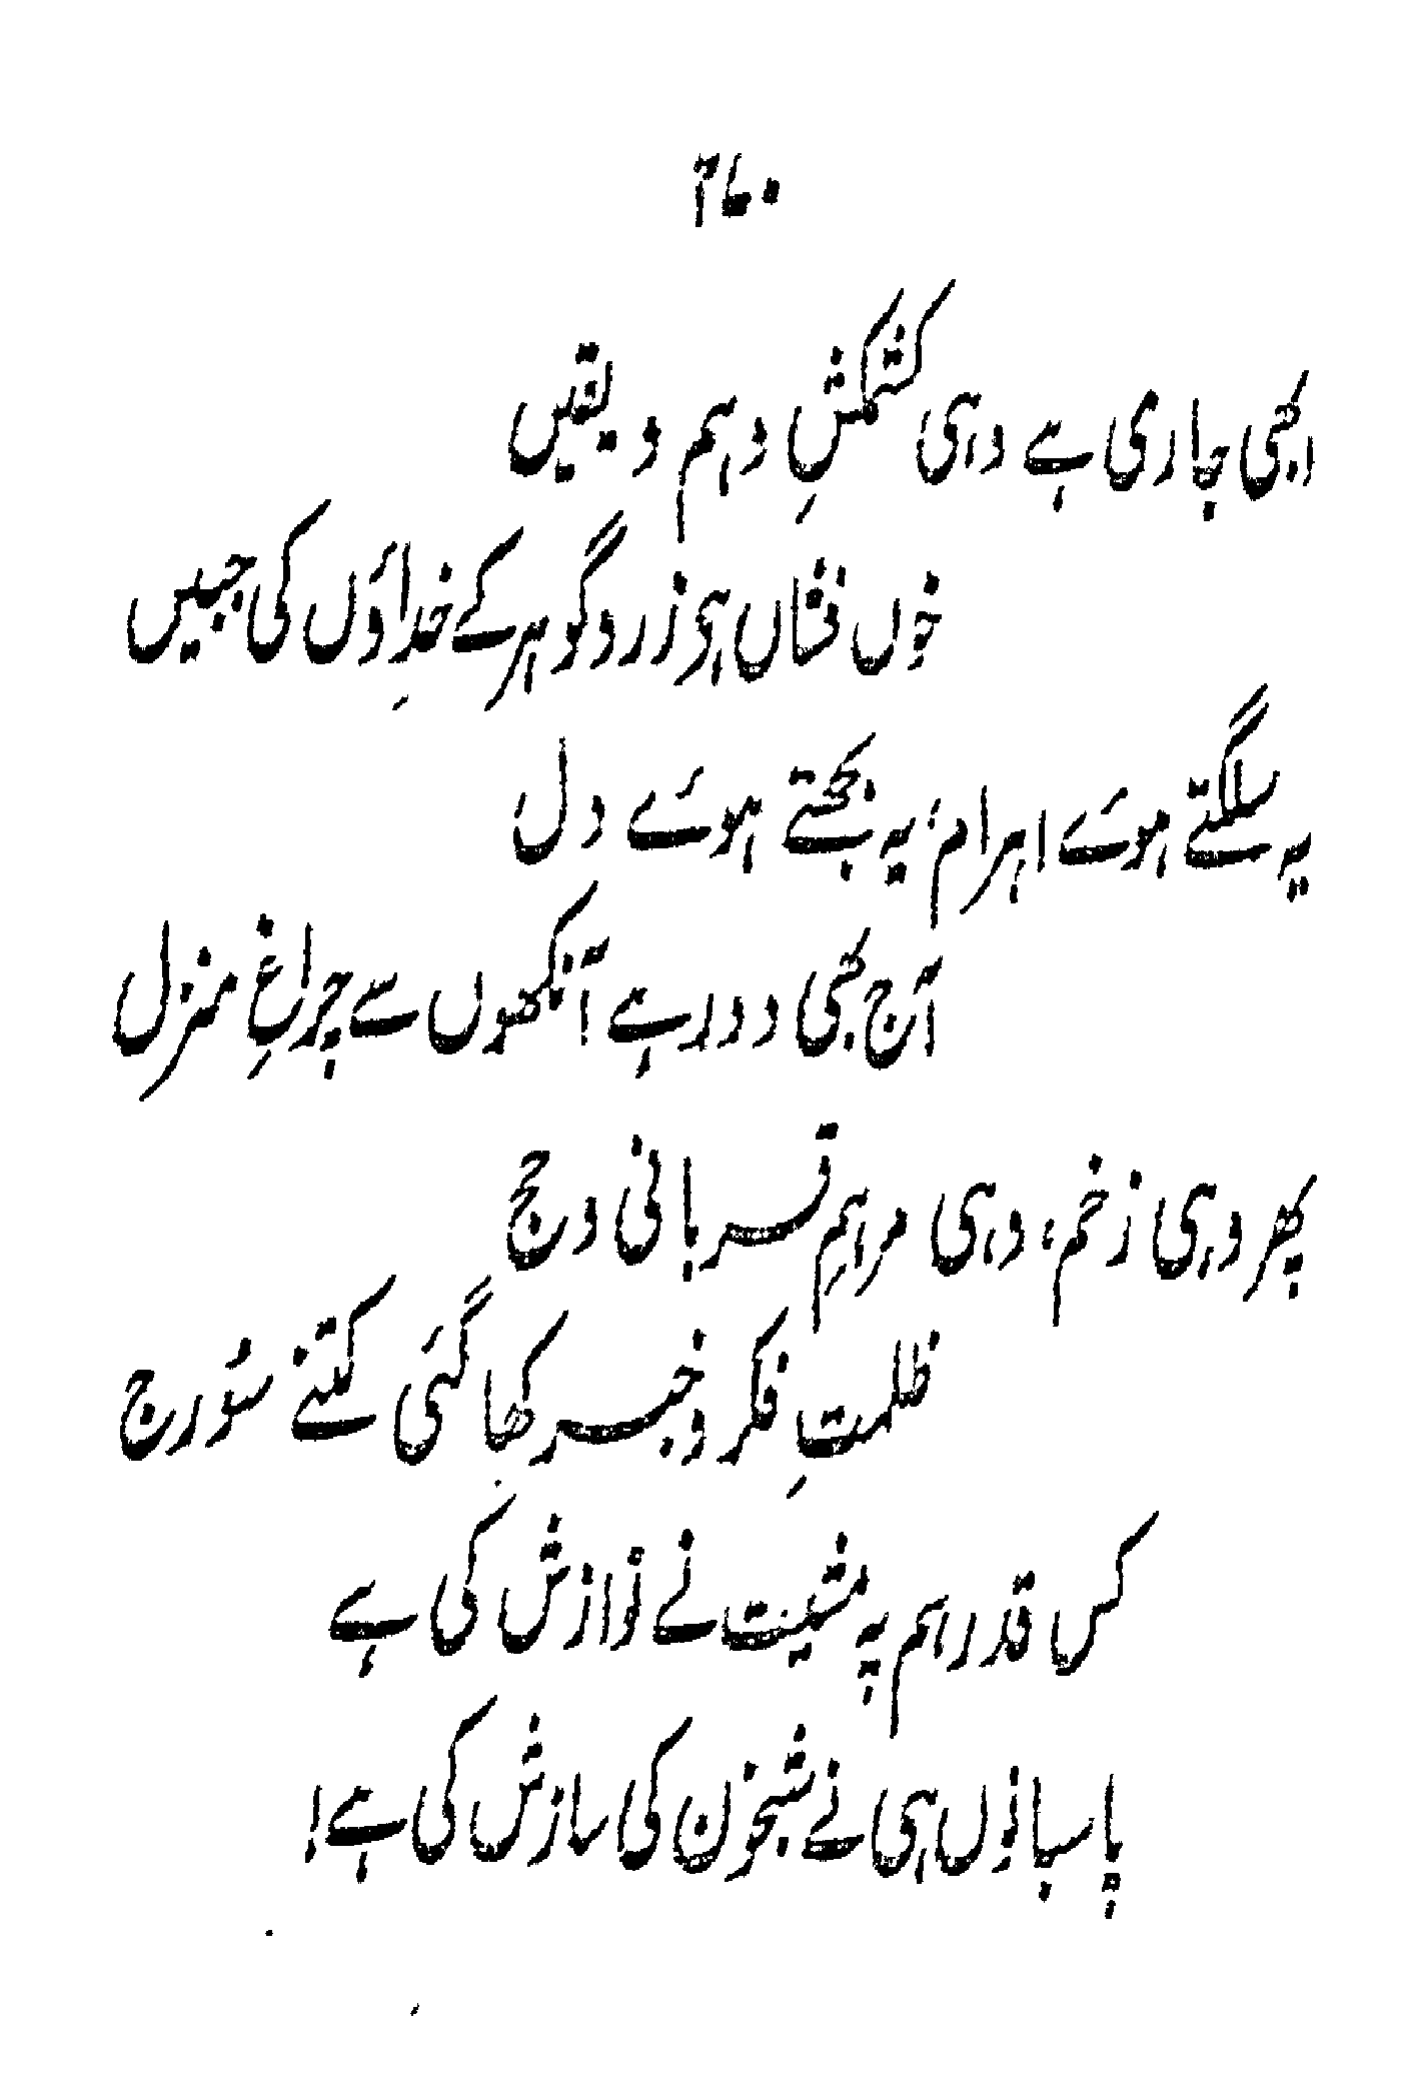 ۲۶۰
ابھی جاری ہے وہی کشمکشِ وہم و یقیں
خوں فشاں ہی زر و گوہر کے خداؤں کی جبیں
یہ سلگتے ہوئے اہرام، یہ بجھتے ہوئے دل
آج بھی دور ہے آنکھوں سے چراغِ منزل
پھر وہی زخم، وہی مراہم قربانی و حج
ظلمتِ فکر و خبر کھا گئی کتنے سُورج
کس قدر ہم پہ مشیت نے نوازش کی ہے
پاسبانوں ہی نے شبخون کی سازش کی ہے!